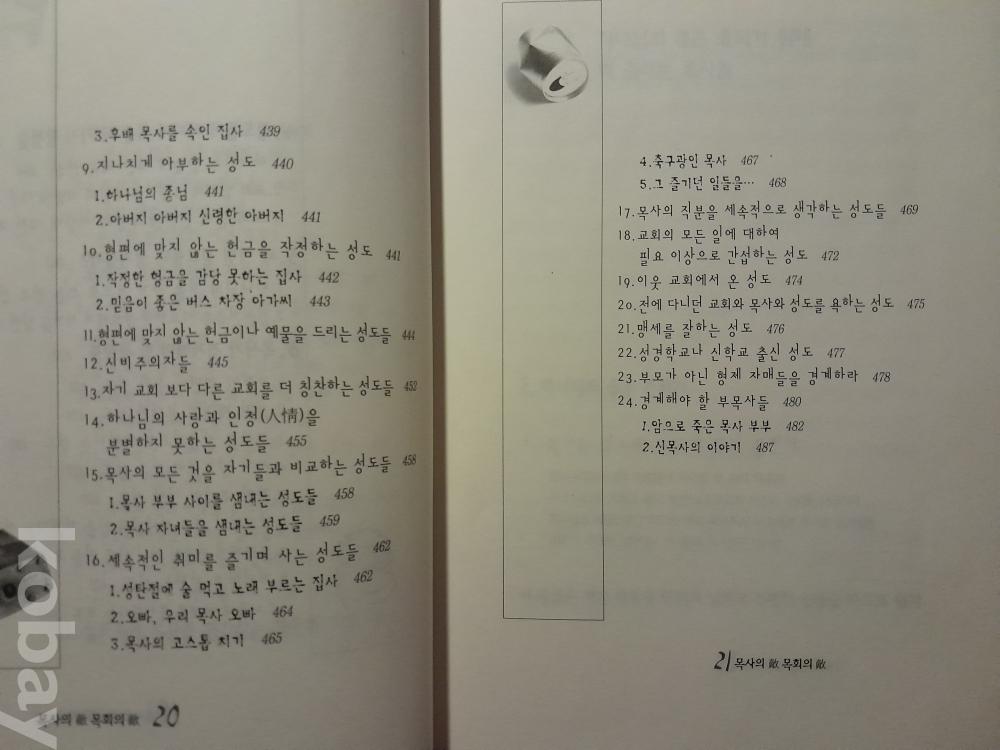 3.후배 목사를 속인 집사 439
9.지나치게 아부하는 성도 440
1.하나님의 종님 441
2.아버지 아버지 신령한 아버지 441
10.형편에 맞지 않는 헌금을 작정하는 성도 441
1.작정한 헝금을 감당 못하는 집사 442
2.믿음이 좋은 버스 차장 아가씨 443
11.형편에 맞지 않는 헌금이나 예물을 드리는 성도들 444
12.신비주의자들 445
13.자기 교회 보다 다른 교회를 더 칭찬하는 성도들 452
14.하나님의 사랑과 인정(人情)을
분별하지 못하는 성도들 455
15.목사의 모든 것을 자기들과 비교하는 성도들 458
1.목사 부부 사이를 샘내는 성도들 458
2.목사 자녀들을 샘내는 성도들 459
16.세속적인 취미를 즐기며 사는 성도들 462
1.성탄절에 술 먹고 노래 부르는 집사 462
2.오빠, 우리 목사 오빠 464
3.목사의 고스톱 치기 465
목사의 敵 목회의 敵 20
kobay
4.축구광인 목사 467
5.그 즐기던 일들을… 468
17.목사의 직분을 세속적으로 생각하는 성도들 469
18.교회의 모든 일에 대하여
필요 이상으로 간섭하는 성도 472
19.이웃 교회에서 온 성도 474
20.전에 다니던 교회와 목사와 성도를 욕하는 성도 475
21.맹세를 잘하는 성도 476
22.성경학교나 신학교 출신 성도 477
23.부모가 아닌 형제 자매들을 경계하라 478
24.경계해야 할 부목사들 480
1.암으로 죽은 목사 부부 482
2.신목사의 이야기 487
21 목사의 敵 목회의 敵